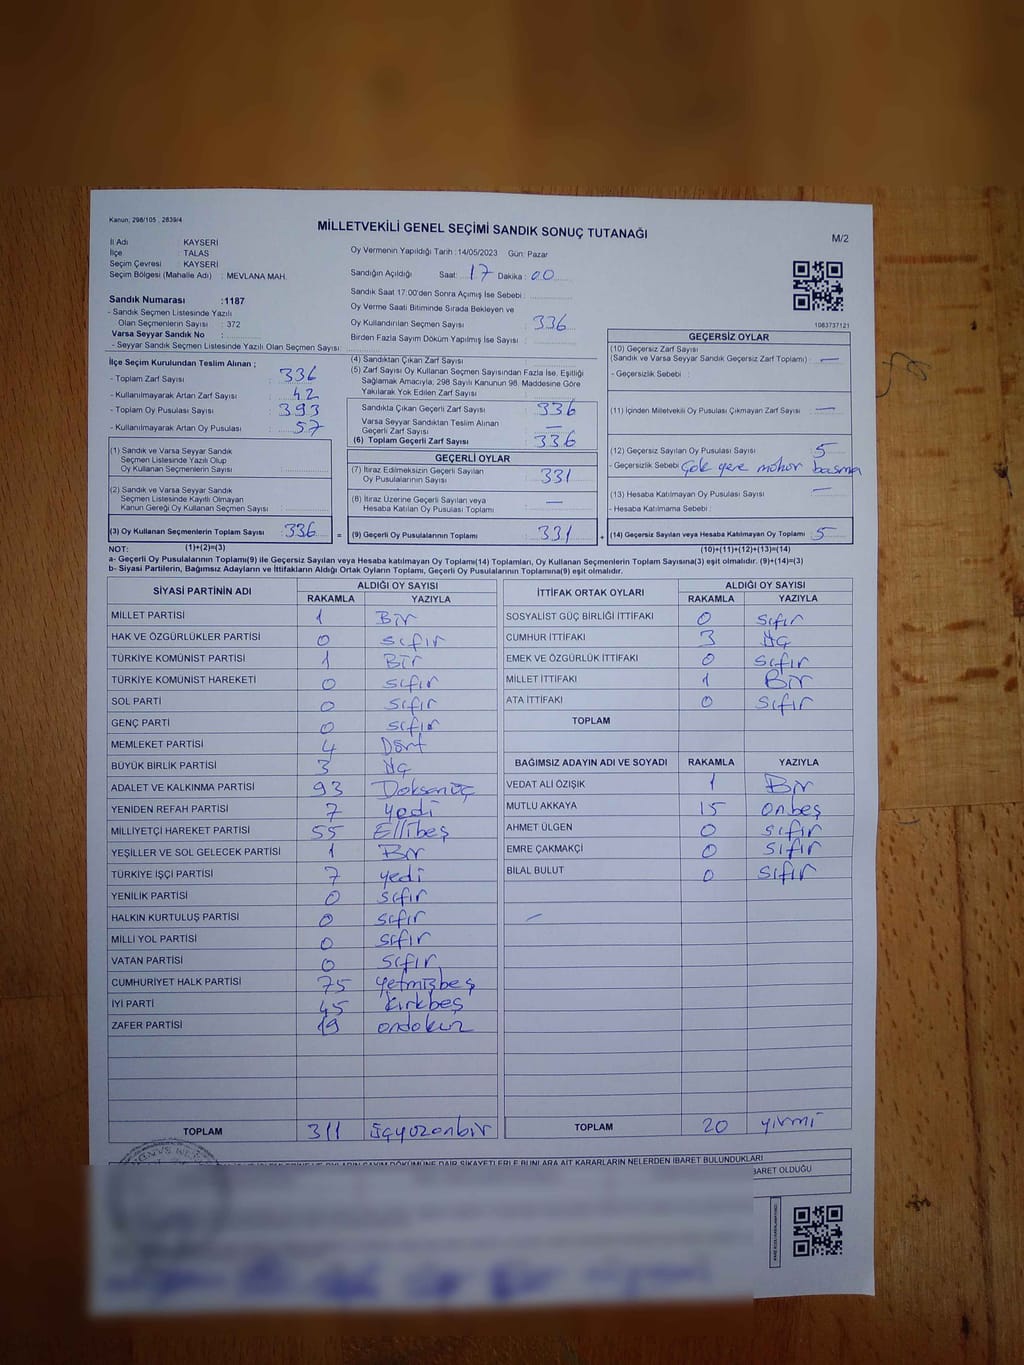 Kanun; 298/105 , 2839/4
MİLLETVEKİLİ GENEL SEÇİMİ SANDIK SONUÇ TUTANAĞI
M/2
İl Adı : KAYSERİ
İlçe : TALAS
Seçim Çevresi : KAYSERİ
Seçim Bölgesi (Mahalle Adı) : MEVLANA MAH.
Oy Vermenin Yapıldığı Tarih :14/05/2023 Gün: Pazar
Sandığın Açıldığı Saat: 17 Dakika : 00
Sandık Saat 17:00'den Sonra Açımış İse Sebebi :
Oy Verme Saati Bitiminde Sırada Bekleyen ve
Oy Kullandırılan Seçmen Sayısı : 336
Birden Fazla Sayım Döküm Yapılmış İse Sayısı :
Sandık Numarası :1187
- Sandık Seçmen Listesinde Yazılı
Olan Seçmenlerin Sayısı : 372
Varsa Seyyar Sandık No :
- Seyyar Sandık Seçmen Listesinde Yazılı Olan Seçmen Sayısı:
1083737121
İlçe Seçim Kurulundan Teslim Alınan ;
- Toplam Zarf Sayısı : 336
- Kullanılmayarak Artan Zarf Sayısı : 42
- Toplam Oy Pusulası Sayısı : 393
- Kullanılmayarak Artan Oy Pusulası : 57
(1) Sandık ve Varsa Seyyar Sandık
Seçmen Listesinde Yazılı Olup
Oy Kullanan Seçmenlerin Sayısı :
(2) Sandık ve Varsa Seyyar Sandık
Seçmen Listesinde Kayıtlı Olmayan
Kanun Gereği Oy Kullanan Seçmen Sayısı :
(3) Oy Kullanan Seçmenlerin Toplam Sayısı : 336 =
(4) Sandıktan Çıkan Zarf Sayısı :
(5) Zarf Sayısı Oy Kullanan Seçmen Sayısından Fazla İse, Eşitliği
Sağlamak Amacıyla; 298 Sayılı Kanunun 98. Maddesine Göre
Yakılarak Yok Edilen Zarf Sayısı :
Sandıkta Çıkan Geçerli Zarf Sayısı : 336
Varsa Seyyar Sandıktan Teslim Alınan
Geçerli Zarf Sayısı : —
(6) Toplam Geçerli Zarf Sayısı : 336
GEÇERLİ OYLAR
(7) İtiraz Edilmeksizin Geçerli Sayılan
Oy Pusulalarının Sayısı : 331
(8) İtiraz Üzerine Geçerli Sayılan veya
Hesaba Katılan Oy Pusulası Toplamı : —
(9) Geçerli Oy Pusulalarının Toplamı : 331 +
GEÇERSİZ OYLAR
(10) Geçersiz Zarf Sayısı
(Sandık ve Varsa Seyyar Sandık Geçersiz Zarf Toplamı) : —
- Geçersizlik Sebebi :
(11) İçinden Milletvekili Oy Pusulası Çıkmayan Zarf Sayısı : —
(12) Geçersiz Sayılan Oy Pusulası Sayısı : 5
- Geçersizlik Sebebi : Çok yere mühür basma
(13) Hesaba Katılmayan Oy Pusulası Sayısı : —
- Hesaba Katılmama Sebebi :
(14) Geçersiz Sayılan veya Hesaba Katılmayan Oy Toplamı : 5
NOT: (1)+(2)=(3)
(10)+(11)+(12)+(13)=(14)
a- Geçerli Oy Pusulalarının Toplamı(9) ile Geçersiz Sayılan veya Hesaba katılmayan Oy Toplamı(14) Toplamları, Oy Kullanan Seçmenlerin Toplam Sayısına(3) eşit olmalıdır. (9)+(14)=(3)
b- Siyasi Partilerin, Bağımsız Adayların ve İttifakların Aldığı Ortak Oyların Toplamı, Geçerli Oy Pusulalarının Toplamına(9) eşit olmalıdır.
SİYASİ PARTİNİN ADI
ALDIĞI OY SAYISI
RAKAMLA YAZIYLA
MİLLET PARTİSİ 1 Bir
HAK VE ÖZGÜRLÜKLER PARTİSİ 0 sıfır
TÜRKİYE KOMÜNİST PARTİSİ 1 Bir
TÜRKİYE KOMÜNİST HAREKETİ 0 sıfır
SOL PARTİ 0 sıfır
GENÇ PARTİ 0 sıfır
MEMLEKET PARTİSİ 4 Dört
BÜYÜK BİRLİK PARTİSİ 3 Üç
ADALET VE KALKINMA PARTİSİ 93 Doksanüç
YENİDEN REFAH PARTİSİ 7 yedi
MİLLİYETÇİ HAREKET PARTİSİ 55 Ellibeş
YEŞİLLER VE SOL GELECEK PARTİSİ 1 Bir
TÜRKİYE İŞÇİ PARTİSİ 7 yedi
YENİLİK PARTİSİ 0 sıfır
HALKIN KURTULUŞ PARTİSİ 0 sıfır
MİLLİ YOL PARTİSİ 0 sıfır
VATAN PARTİSİ 0 sıfır
CUMHURİYET HALK PARTİSİ 75 yetmişbeş
İYİ PARTİ 45 kırkbeş
ZAFER PARTİSİ 19 ondokuz
TOPLAM 311 üçyüzonbir
İTTİFAK ORTAK OYLARI
ALDIĞI OY SAYISI
RAKAMLA YAZIYLA
SOSYALİST GÜÇ BİRLİĞİ İTTİFAKI 0 sıfır
CUMHUR İTTİFAKI 3 Üç
EMEK VE ÖZGÜRLÜK İTTİFAKI 0 sıfır
MİLLET İTTİFAKI 1 Bir
ATA İTTİFAKI 0 sıfır
TOPLAM
BAĞIMSIZ ADAYIN ADI VE SOYADI RAKAMLA YAZIYLA
VEDAT ALİ ÖZIŞIK 1 Bir
MUTLU AKKAYA 15 onbeş
AHMET ÜLGEN 0 sıfır
EMRE ÇAKMAKÇİ 0 sıfır
BİLAL BULUT 0 sıfır
TOPLAM 20 yirmi
SAYIM DÖKÜMÜNE DAİR ŞİKAYETLERLE BUNLARA AİT KARARLARIN NELERDEN İBARET BULUNDUKLARI
BARET OLDUĞU